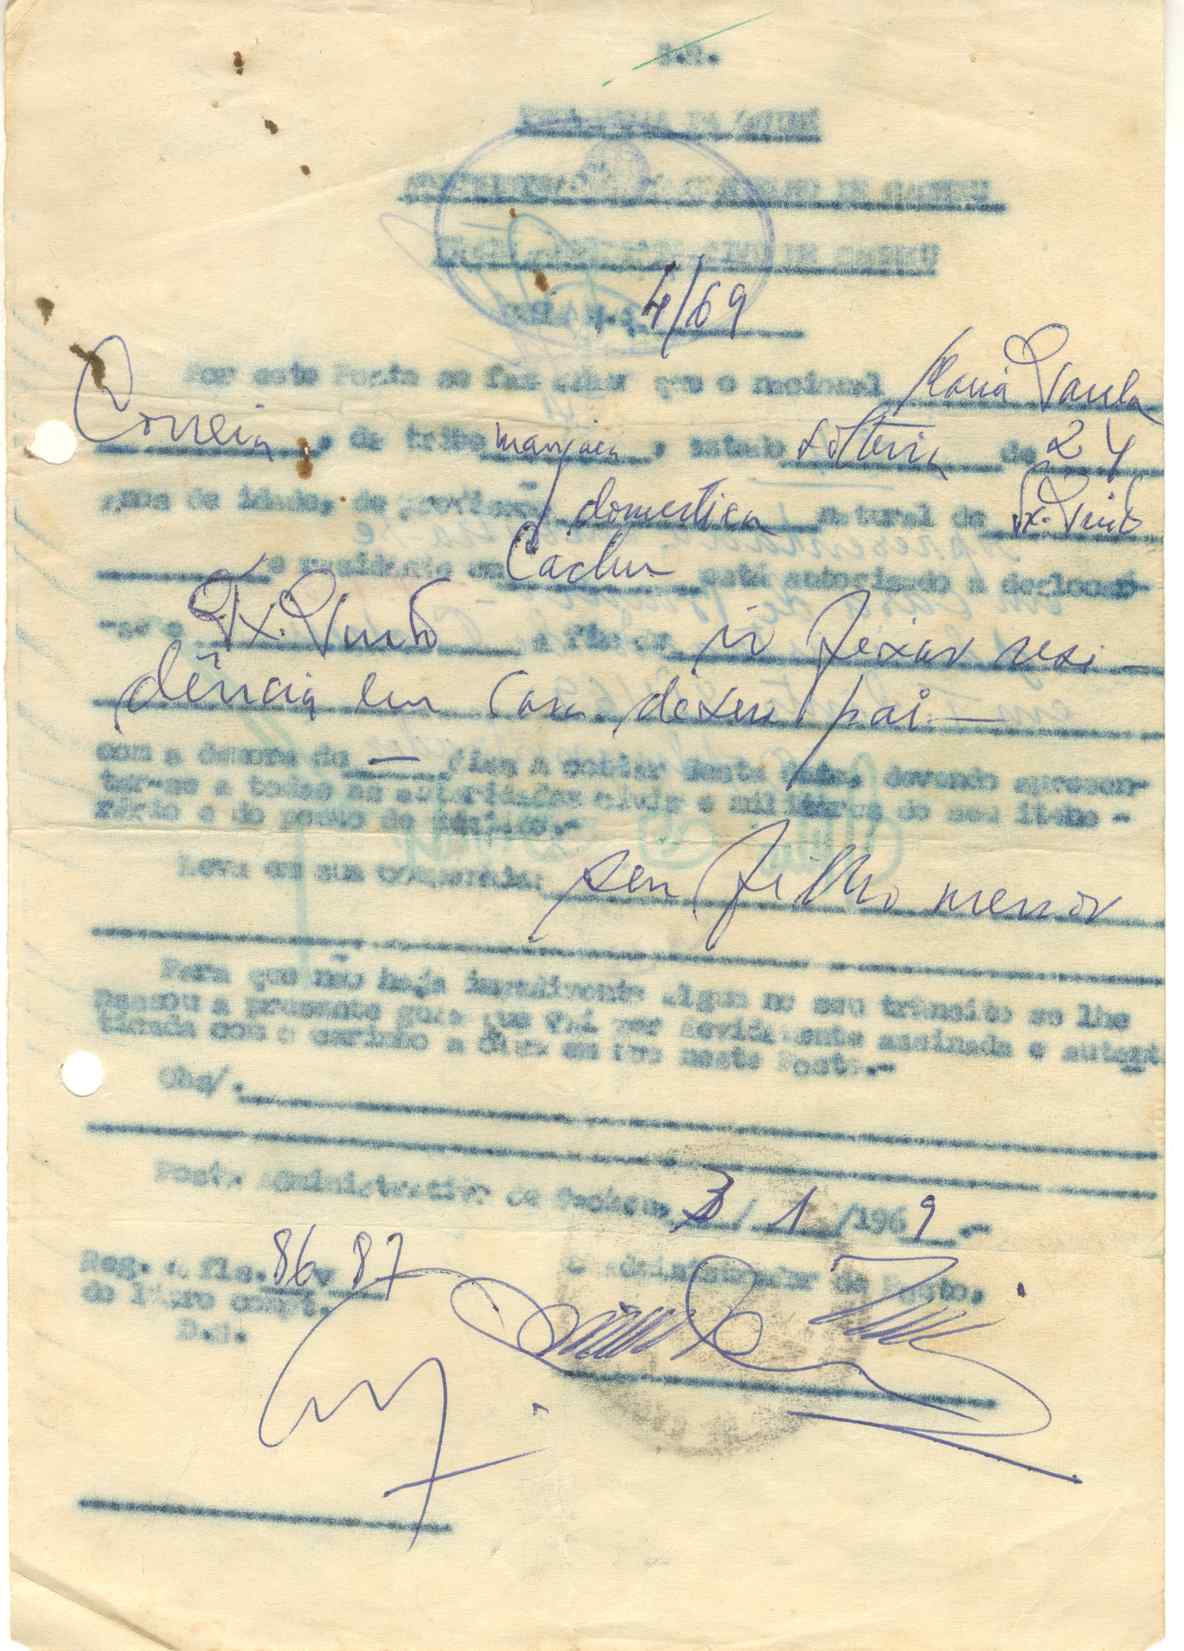 S.R.
PROVÍNCIA DA GUINÉ
GUIA N.º 4/69
Por este Posto se faz saber que o nacional Maria Paula
Correia, da tribo manjaca, estado solteira de 24
anos de idade, de profissão domestica natural de Tx. Pinto
e residente em Cacheu está autorizado a deslocar
-se a Tx. Pinto a fim de ir feixar resi-
dência em casa de seu pai —
com a demora de — dias a contar desta data, devendo apresen-
tar-se a todas as autoridades civis e militares do seu itene -
rário e do posto de destino.-
Leva em sua companhia: seu filho menor
Para que não haja impedimento algum no seu trânsito se lhe
Passou a presente guia que vai ser devidamente assinada e autent
ticada com o carimbo a óleo em uso neste Posto.-
Obs/.
Posto Administrativo de Cacheu, 3/1/1969.-
Reg. a fls. 86 v 87 O Administrador de Posto,
do livro compt.